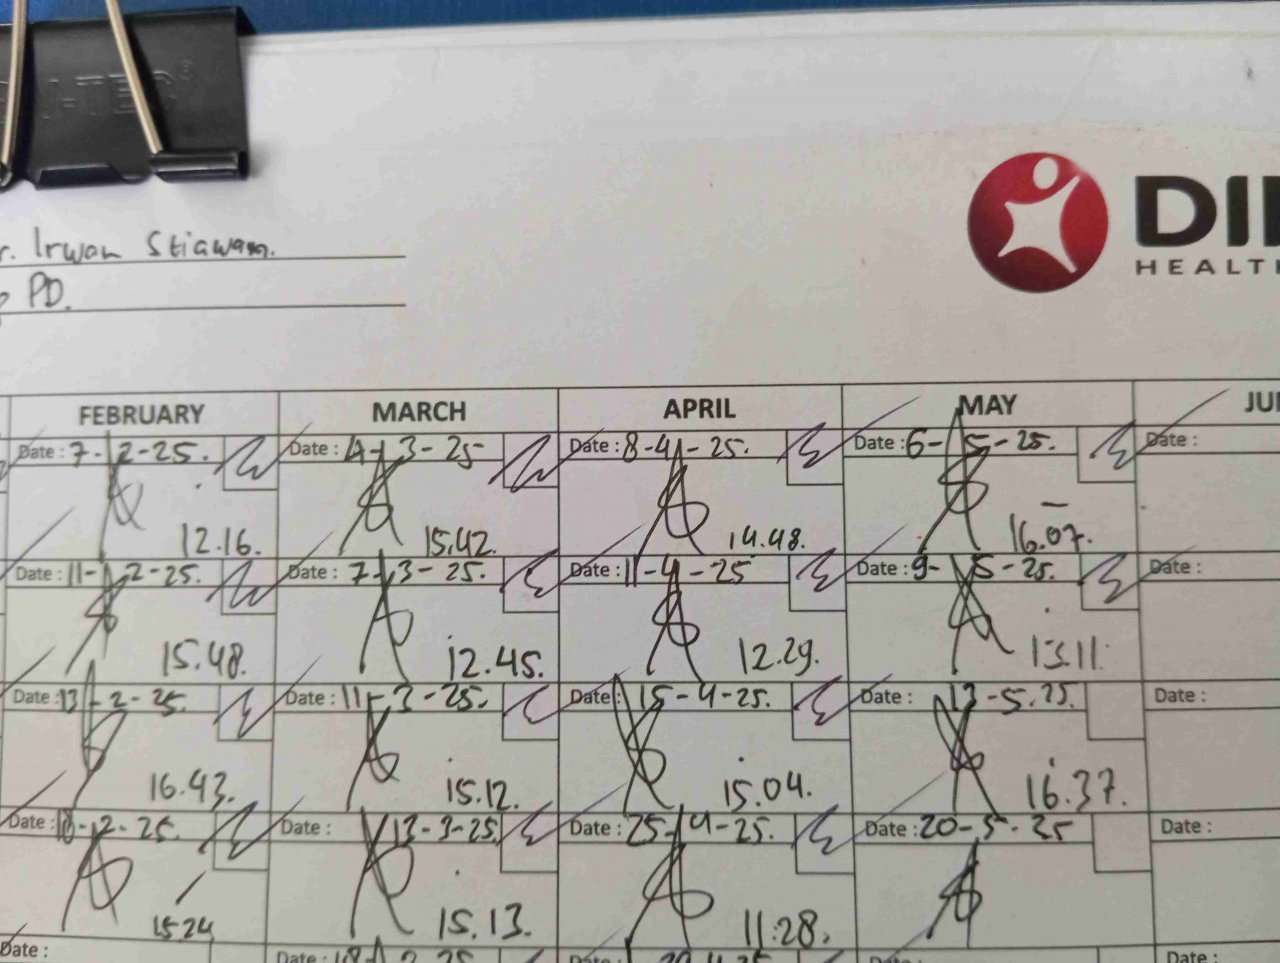 r. Irwan Stiawan.
PD.
DI
HEALT
FEBRUARY MARCH APRIL MAY JU
Date : 7-2-25. Date : 4-3-25 Date : 8-4-25. Date : 6-5-25. Date :
12.16. 15.42. 14.48. 16.07.
Date : 11-2-25. Date : 7-3-25. Date : 11-4-25 Date : 9-5-25. Date :
15.48. 12.45. 12.29. 13.11.
Date : 13-2-25. Date : 11-3-25. Date : 15-4-25. Date : 13-5.25. Date :
16.43. 15.12. 15.04. 16.37.
Date : 18-2-25. Date : 13-3-25. Date : 25-4-25. Date : 20-5-25 Date :
15.24 15.13. 11:28.
Date : Date : Date :